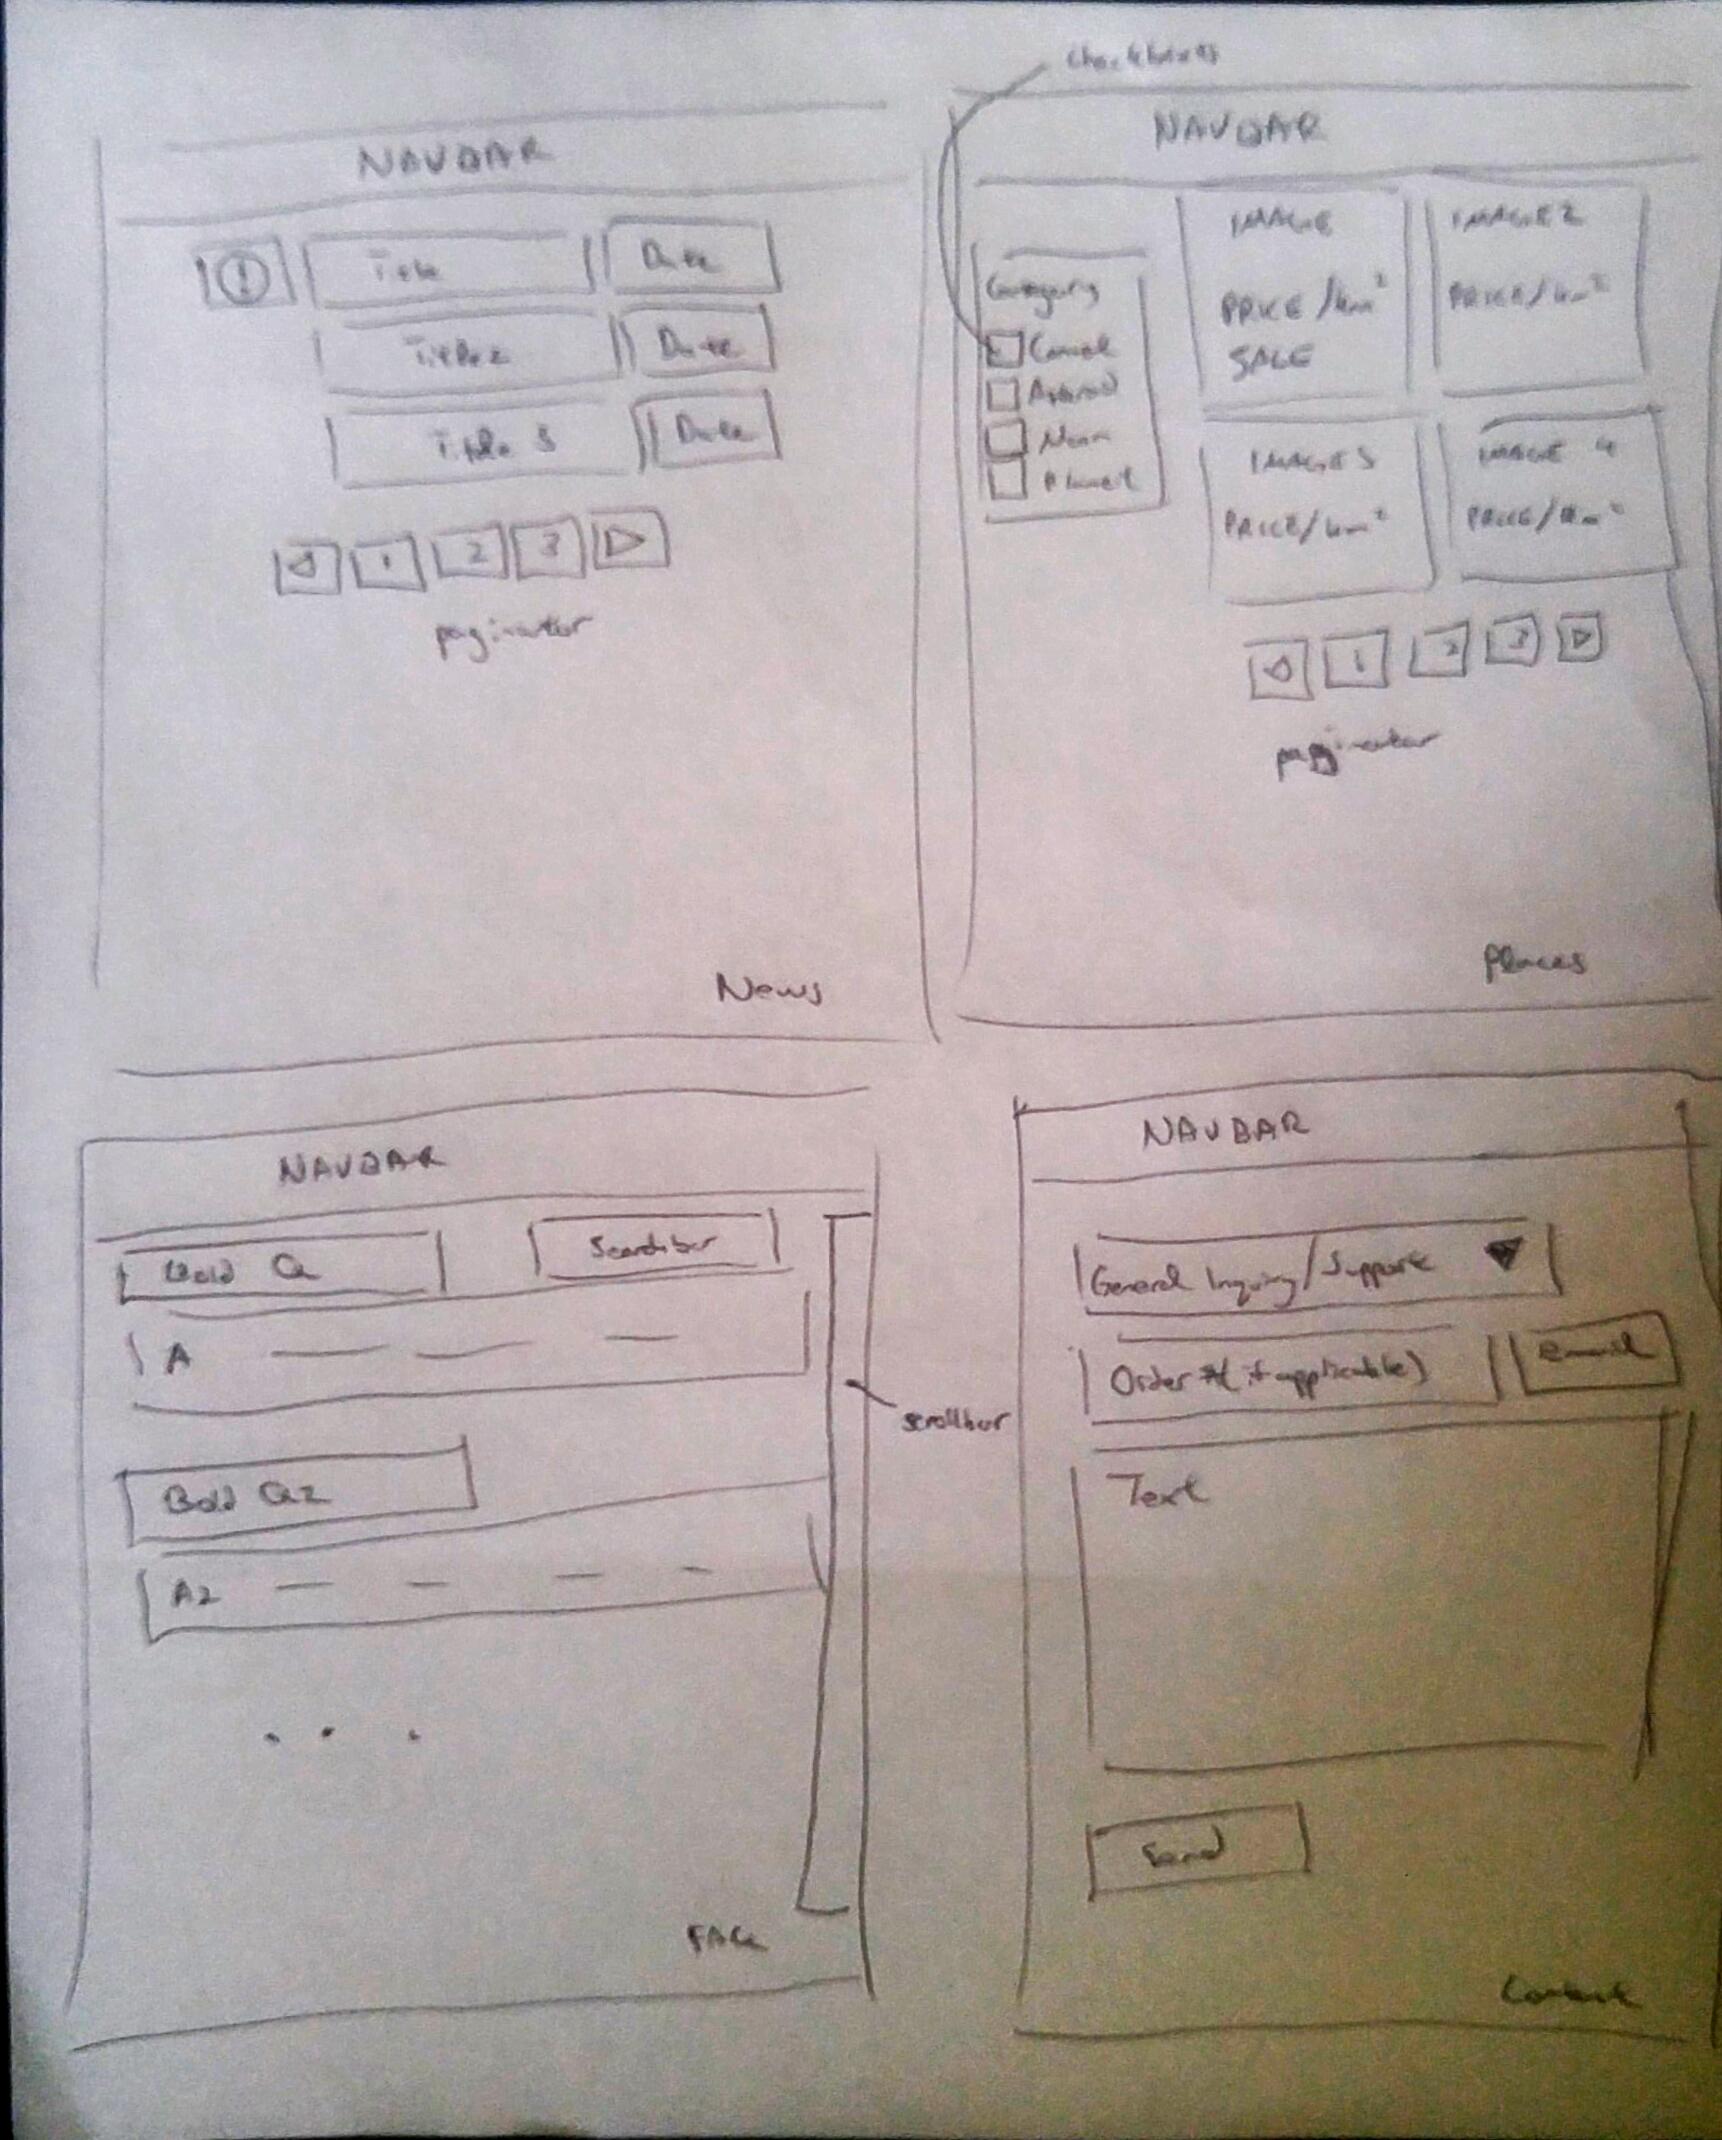 checkboxes
NAVBAR
! Title Date
Title 2 Date
Title 3 Date
1 2 3
paginator
News
NAVBAR
Category
Comet
Asteroid
Moon
Planet
IMAGE
PRICE/km²
SALE
IMAGE 2
PRICE/km²
IMAGE 3
PRICE/km²
IMAGE 4
PRICE/km²
1 2 3
paginator
Places
NAVBAR
Bold Q Searchbar
A
Bold Q2
A2
. . .
scrollbar
FAQ
NAVBAR
General Inquiry/Support
Order #(if applicable) email
Text
Send
Contact